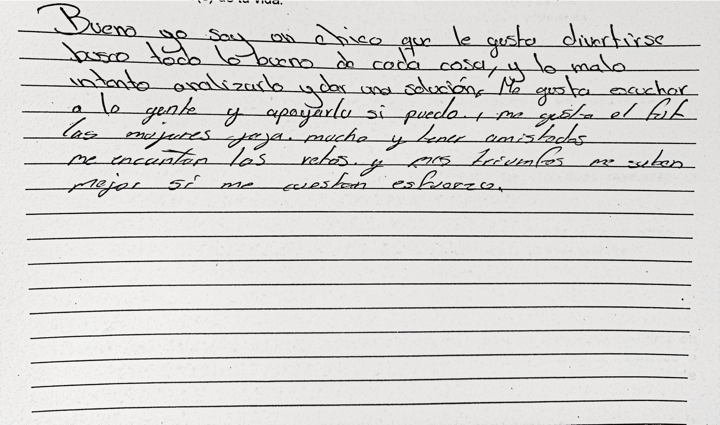 de tu vida.
Bueno yo soy un chico que le gusta divertirse
busco todo lo bueno de cada cosa, y lo malo
intento analizarlo y dar una solución. Me gusta escuchar
a la gente y apoyarla si puedo, me gusta el fut
las mujeres jaja mucho y tener amistades
me encantan los retos y mis triunfos me saben
mejor si me cuestan esfuerzo.